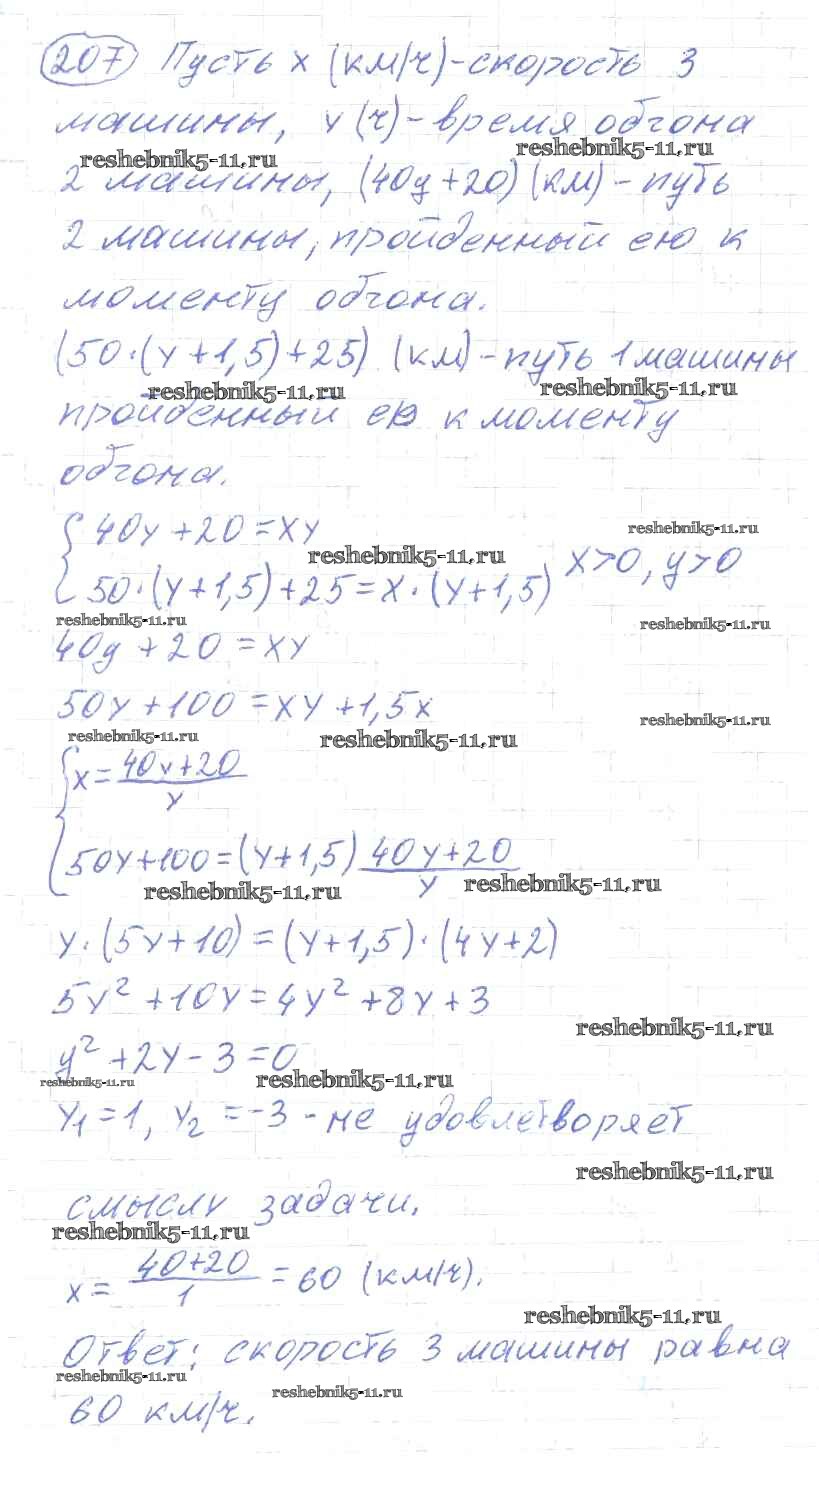 207 Пусть x (км/ч) - скорость 3
машины, y (ч) - время обгона
reshebnik5-11.ru reshebnik5-11.ru
2 машины, (40y + 20) (км) - путь
2 машины, пройденный ею к
моменту обгона.
(50·(y + 1,5) + 25) (км) - путь 1 машины
reshebnik5-11.ru reshebnik5-11.ru
пройденный ею к моменту
обгона.
{ 40y + 20 = xy
reshebnik5-11.ru reshebnik5-11.ru
50·(y + 1,5) + 25 = x·(y + 1,5) x > 0, y > 0
reshebnik5-11.ru reshebnik5-11.ru
40y + 20 = xy
50y + 100 = xy + 1,5x
reshebnik5-11.ru
reshebnik5-11.ru reshebnik5-11.ru
{ x = (40y + 20)/y
50y + 100 = (y + 1,5) (40y + 20)/y
reshebnik5-11.ru reshebnik5-11.ru
y·(5y + 10) = (y + 1,5)·(4y + 2)
5y² + 10y = 4y² + 8y + 3
reshebnik5-11.ru
y² + 2y - 3 = 0
reshebnik5-11.ru reshebnik5-11.ru
y₁ = 1, y₂ = -3 - не удовлетворяет
reshebnik5-11.ru
смыслу задачи.
reshebnik5-11.ru
x = (40 + 20)/1 = 60 (км/ч).
reshebnik5-11.ru
Ответ: скорость 3 машины равна
reshebnik5-11.ru reshebnik5-11.ru
60 км/ч.